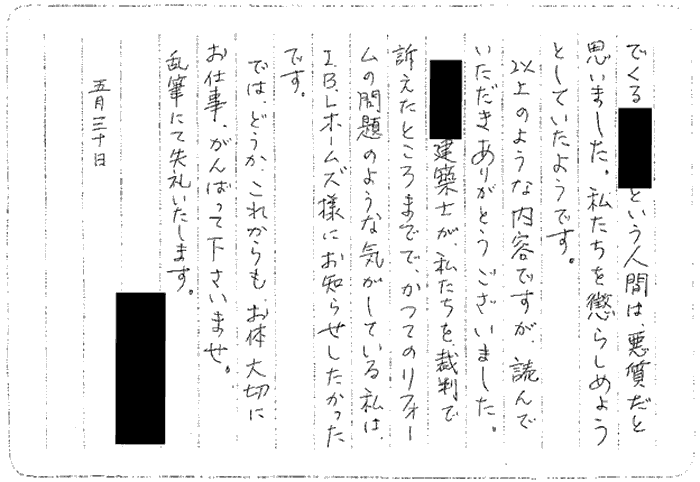 でくる
という人間は、悪質だと
思いました。私たちを懲らしめよう
としていたようです。
以上のような内容ですが、読んで
いただきありがとうございました。
建築士が、私たちを、裁判で
訴えたところまでで、かつてのリフォー
ムの問題のような気がしている私は、
I.B.Lホームズ様にお知らせしたかった
です。
では、どうか、これからもお体大切に
お仕事、がんばって下さいませ。
乱筆にて失礼いたします。
五月三十日